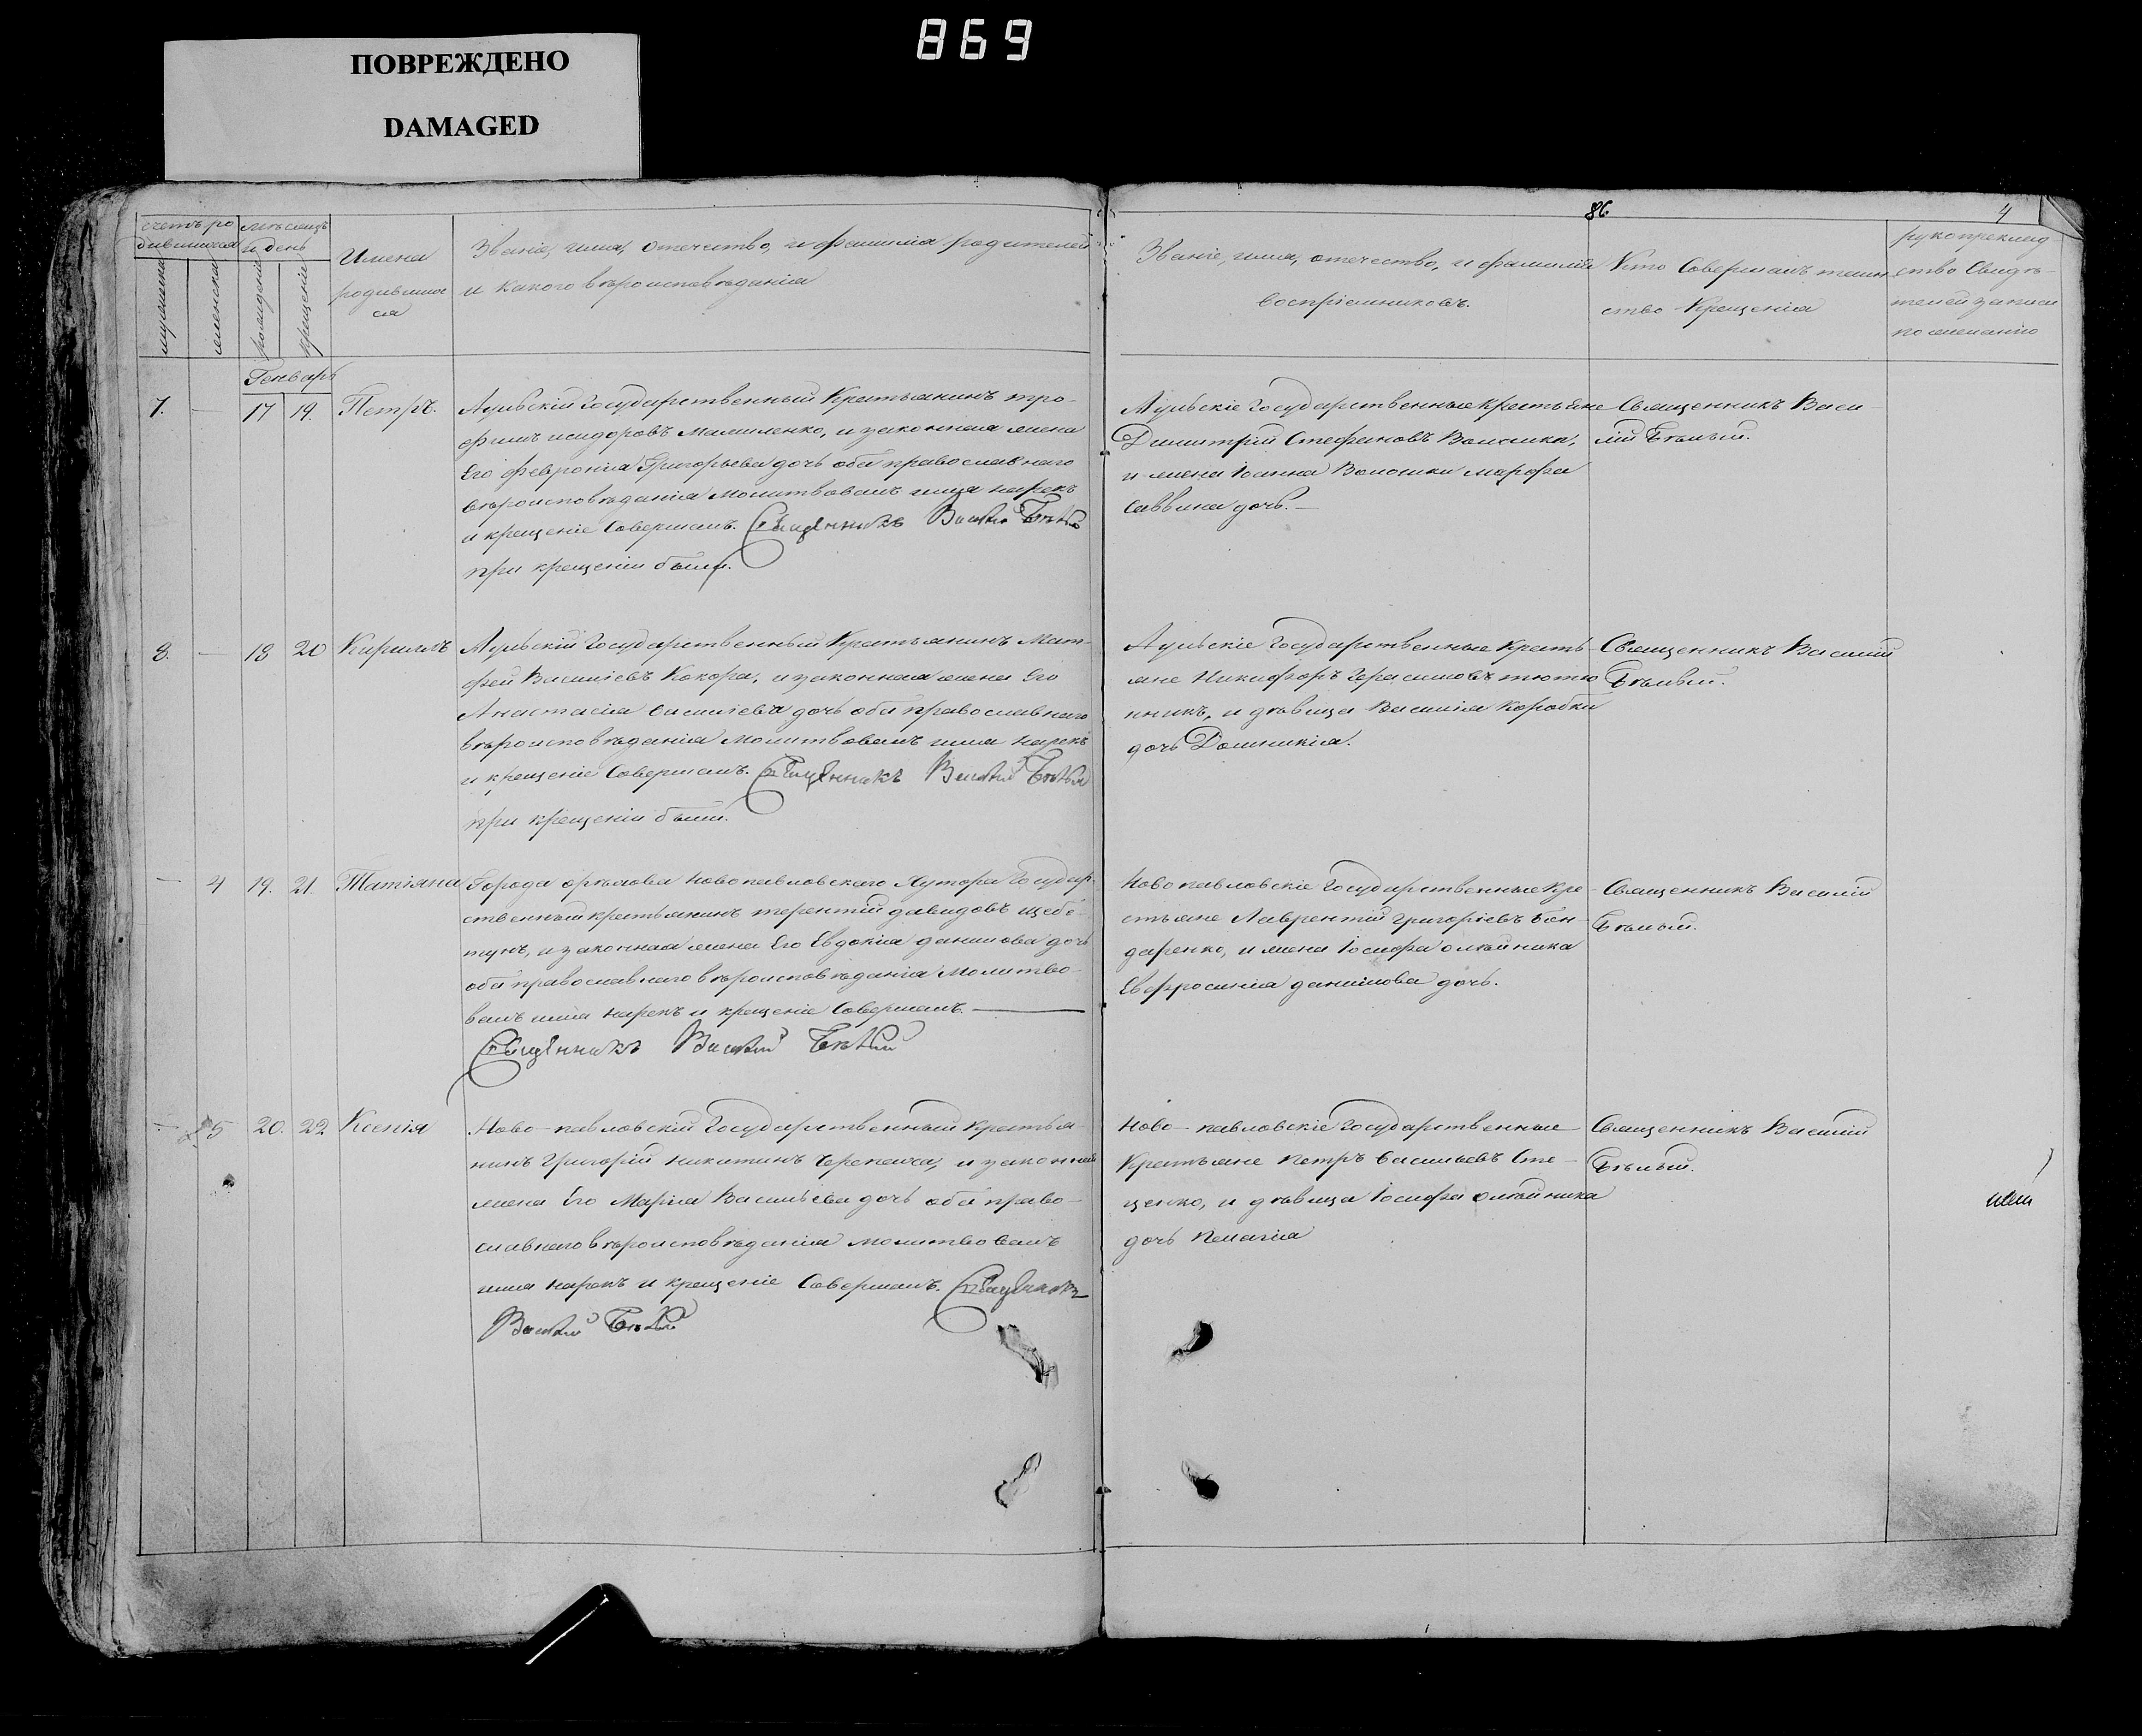 869
ПОВРЕЖДЕНО
DAMAGED
86.
4
счетъ ро
дившихся
мужеска
женска
мѣсяцъ
и день
рожденія
крещенія
Имена
родивших
ся
Званіе, имя, отечество, и фамилія родителей
и какого вѣроисповѣданія
Званіе, имя, отечество, и фамилія
воспріемниковъ.
Кто Совершалъ таин
ство Крещенія
рукоприклад
ство Свидѣ-
телей записи
по желанію
Генварь
7. — 17 19. Петръ.
Аульскій Государственный Крестьянинъ Тро-
фимъ исидоровъ Малиленко, и законная жена
Его феврониа Григорьева дочь оба православнаго
вѣроисповѣданія Молитвовалъ имя нарекъ
и крещеніе Совершалъ. Священникъ Василий Бѣлый
при крещеніи были.
Аульскіе Государственные Крестьяне
Димитрій Стефановъ Волошка,
и жена Іоанна Волошки марфа
саввина дочь. —
Священникъ Васи-
лій Бѣлый.
8. — 18 20 Кириллъ
Аульскій Государственный Крестьянинъ Мат-
фей Василіевъ Кокора, и законная жена Его
Анастасіа василіева дочь оба православнаго
вѣроисповѣданія Молитвовалъ имя нарекъ
и крещеніе Совершалъ. Священникъ Василий Бѣлый
при крещеніи были.
Аульскіе Государственные Кресть-
яне Никифоръ Герасимовъ тютю
нникъ, и дѣвица Василія Коробки
дочь Домникіа.
Священникъ Василій
Бѣлый.
— 4 19. 21. Татіяна
Города орѣхова Новопавловскаго Хутора Государ-
ственный крестьянинъ терентій давидовъ щебе-
тунъ, и законная жена Его Евдокіа данилова дочь
оба православнаго вѣроисповѣданія Молитво-
валъ имя нарекъ и крещеніе Совершалъ. —
Священникъ Василий Бѣлый
Новопавловскіе Государственные Кре-
стьяне Лаврентій григоріевъ Бон-
даренко, и жена Іосифа олѣйника
Евфросиніа данилова дочь.
Священникъ Василій
Бѣлый.
— 5 20. 22 Ксенія
Ново-павловскій Государственный Крестья-
нинъ Григорій никитинъ Черепаха, и законная
жена Его Марія Васильева дочь оба право-
славнаго вѣроисповѣданіа молитвовалъ
имя нарекъ и крещеніе Совершалъ. Священникъ
Василий Бѣлый
Ново-павловскіе Государственные
Крестьяне петръ васильевъ Сте-
ценко, и дѣвица Іосифа олѣйника
дочь пелагіа
Священникъ Василій
Бѣлый.